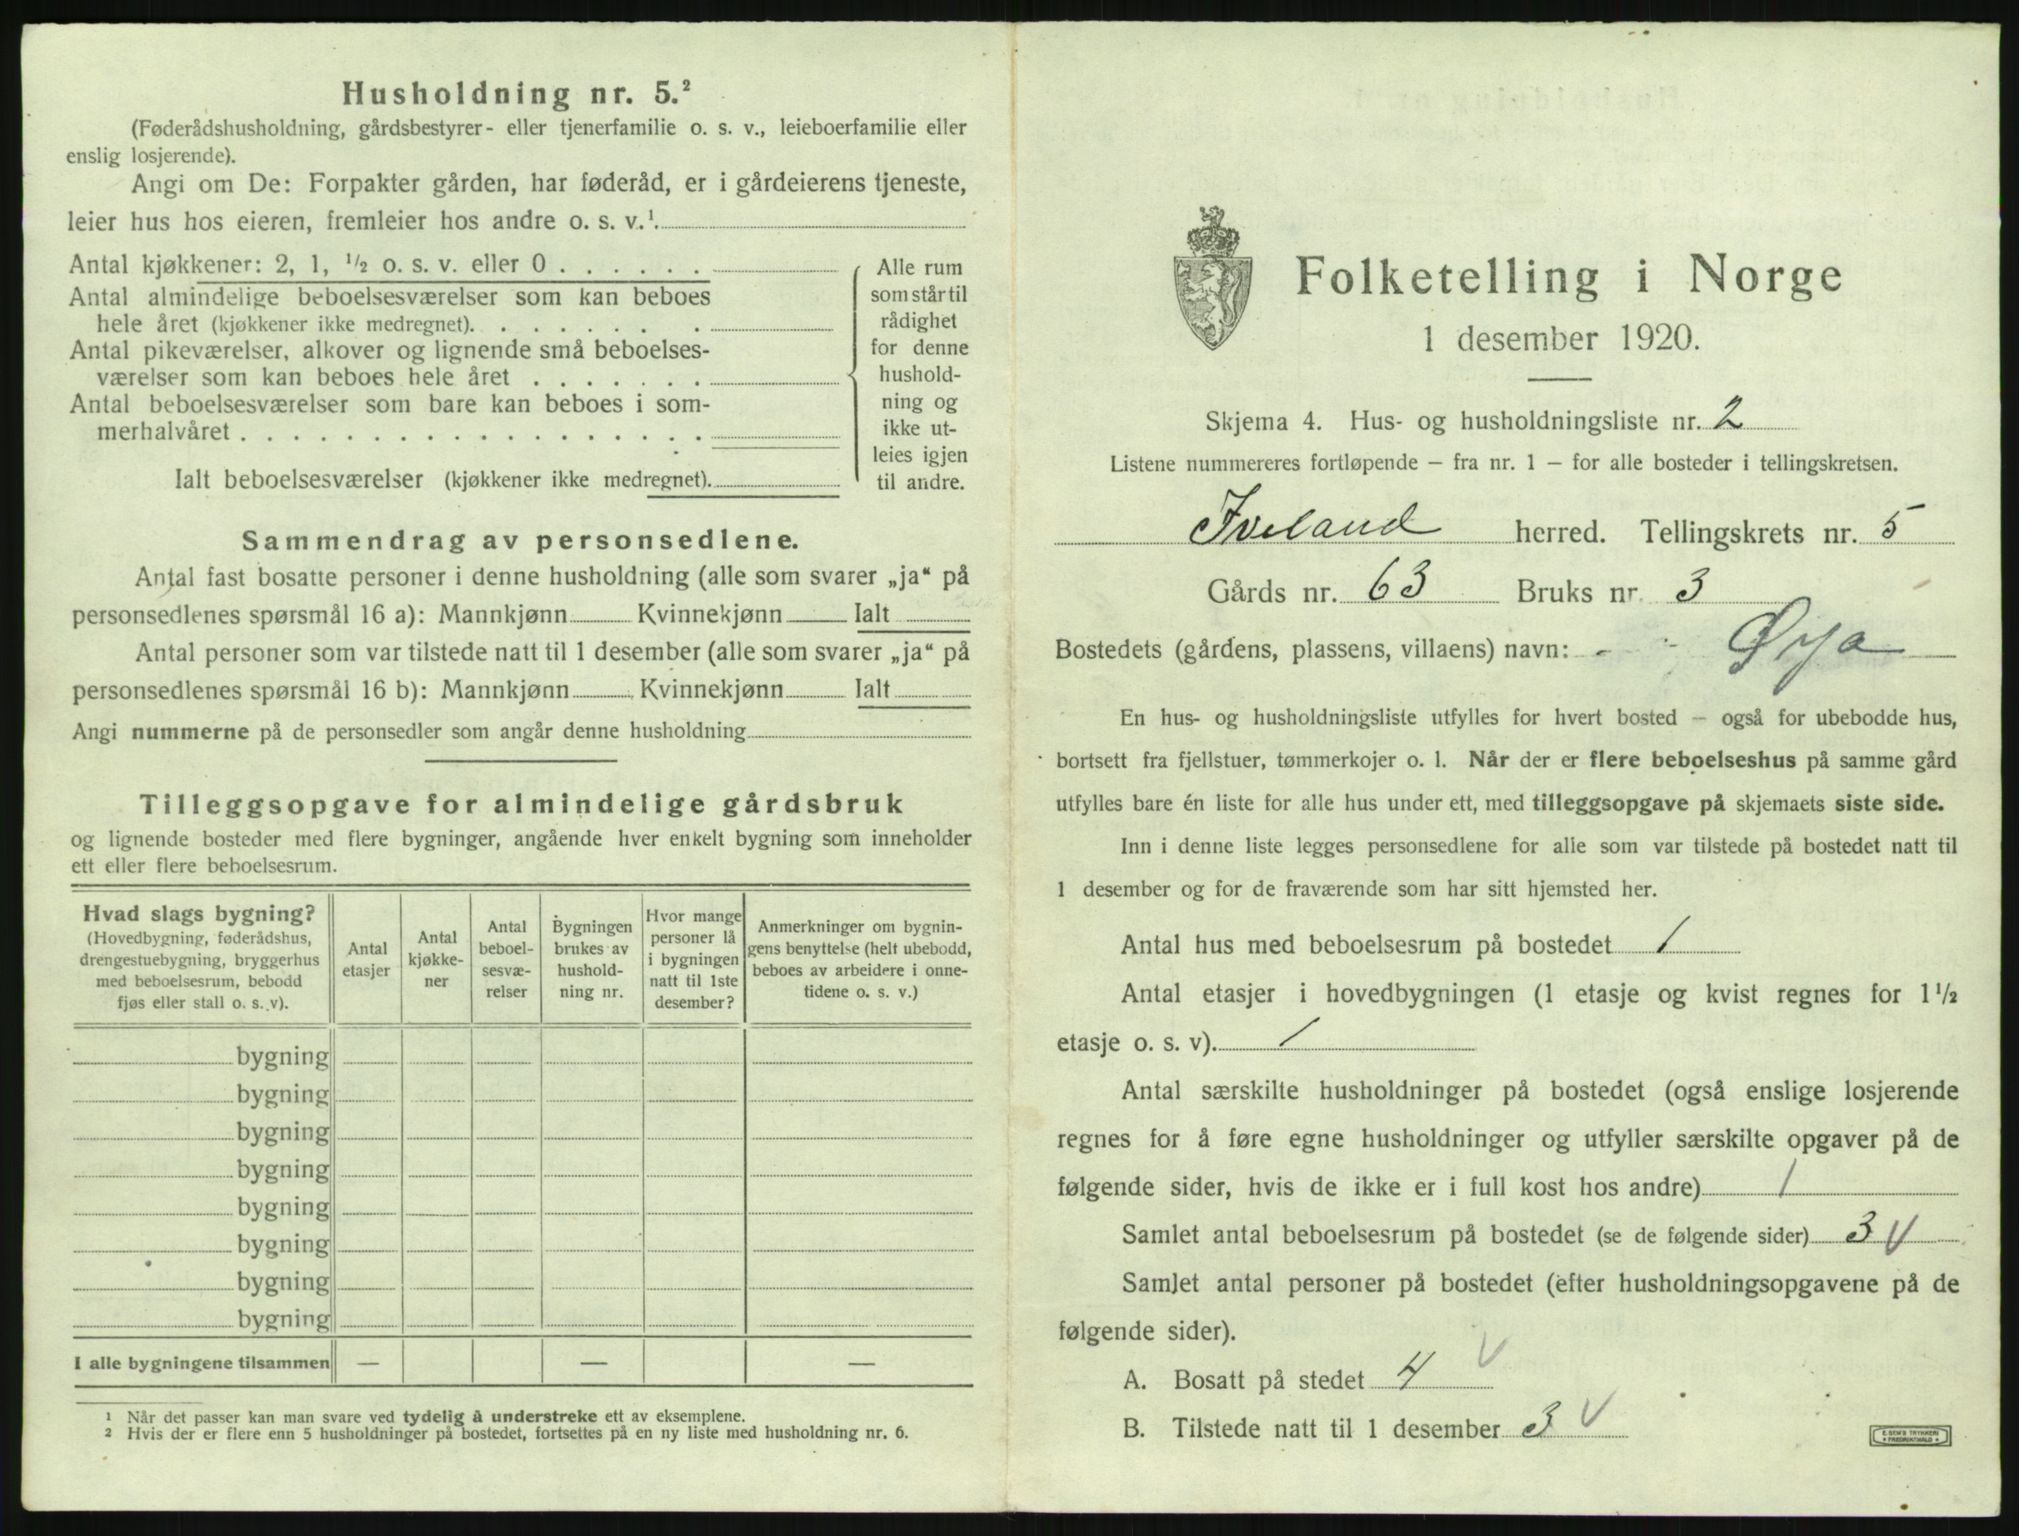 Husholdning nr. 5.²
(Føderådshusholdning, gårdsbestyrer- eller tjenerfamilie o. s. v., leieboerfamilie eller
enslig losjerende).
Angi om De: Forpakter gården, har føderåd, er i gårdeierens tjeneste,
leier hus hos eieren, fremleier hos andre o. s. v.¹.
Antal kjøkkener: 2, 1, ½ o. s. v. eller 0 . . . . . .
Antal almindelige beboelsesværelser som kan beboes
hele året (kjøkkener ikke medregnet). . . . . . . . .
Antal pikeværelser, alkover og lignende små beboelses-
værelser som kan beboes hele året . . . . . . .
Antal beboelsesværelser som bare kan beboes i som-
merhalvåret . . . . . . . . . . . . . . . . . .
Ialt beboelsesværelser (kjøkkener ikke medregnet).
Alle rum
som står til
rådighet
for denne
hushold-
ning og
ikke ut-
leies igjen
til andre.
Sammendrag av personsedlene.
Antal fast bosatte personer i denne husholdning (alle som svarer „ja“ på
personsedlenes spørsmål 16 a): Mannkjønn Kvinnekjønn Ialt
Antal personer som var tilstede natt til 1 desember (alle som svarer „ja“ på
personsedlenes spørsmål 16 b): Mannkjønn Kvinnekjønn Ialt
Angi nummerne på de personsedler som angår denne husholdning
Tilleggsopgave for almindelige gårdsbruk
og lignende bosteder med flere bygninger, angående hver enkelt bygning som inneholder
ett eller flere beboelsesrum.
Hvad slags bygning?
(Hovedbygning, føderådshus,
drengestuebygning, bryggerhus
med beboelsesrum, bebodd
fjøs eller stall o. s. v).
Antal
etasjer
Antal
kjøkke-
ner
Antal
beboel-
sesvæ-
relser
Bygningen
brukes av
hushold-
ning nr.
Hvor mange
personer lå
i bygningen
natt til 1ste
desember?
Anmerkninger om bygnin-
gens benyttelse (helt ubebodd,
beboes av arbeidere i onne-
tidene o. s. v.)
bygning
bygning
bygning
bygning
bygning
bygning
bygning
bygning
I alle bygningene tilsammen — — —
¹ Når det passer kan man svare ved tydelig å understreke ett av eksemplene.
² Hvis der er flere enn 5 husholdninger på bostedet, fortsettes på en ny liste med husholdning nr. 6.
Folketelling i Norge
1 desember 1920.
Skjema 4. Hus- og husholdningsliste nr. 2
Listene nummereres fortløpende – fra nr. 1 – for alle bosteder i tellingskretsen.
Iveland herred. Tellingskrets nr. 5
Gårds nr. 63 Bruks nr. 3
Bostedets (gårdens, plassens, villaens) navn: Øya
En hus- og husholdningsliste utfylles for hvert bosted – også for ubebodde hus,
bortsett fra fjellstuer, tømmerkojer o. l. Når der er flere beboelseshus på samme gård
utfylles bare én liste for alle hus under ett, med tilleggsopgave på skjemaets siste side.
Inn i denne liste legges personsedlene for alle som var tilstede på bostedet natt til
1 desember og for de fraværende som har sitt hjemsted her.
Antal hus med beboelsesrum på bostedet 1
Antal etasjer i hovedbygningen (1 etasje og kvist regnes for 1½
etasje o. s. v). 1
Antal særskilte husholdninger på bostedet (også enslige losjerende
regnes for å føre egne husholdninger og utfyller særskilte opgaver på de
følgende sider, hvis de ikke er i full kost hos andre) 1
Samlet antal beboelsesrum på bostedet (se de følgende sider) 3 V
Samlet antal personer på bostedet (efter husholdningsopgavene på de
følgende sider).
A. Bosatt på stedet 4 V
B. Tilstede natt til 1 desember 3 V
E. SEM'S TRYKKERI
FREDRIKSHALD